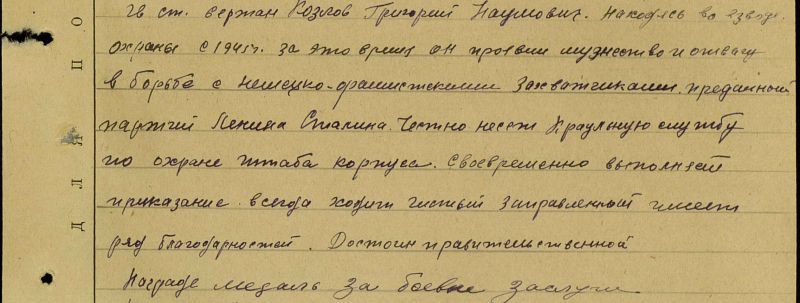 гв ст. сержан Козлов Григорий Наумович. Находясь во взводе
охраны с 1941г. за это время он проявил мужество и отвагу
в борьбе с немецко-фашистскими захватчиками. преданный
партией Ленина Сталина. Честно несет караульную службу
по охране штаба корпуса. Своевременно выполняет
приказание. всегда ходит чистый заправленный имеет
ряд благодарностей. Достоин правительственной
Награде медаль за боевые заслуги
ДЛЯ ПО